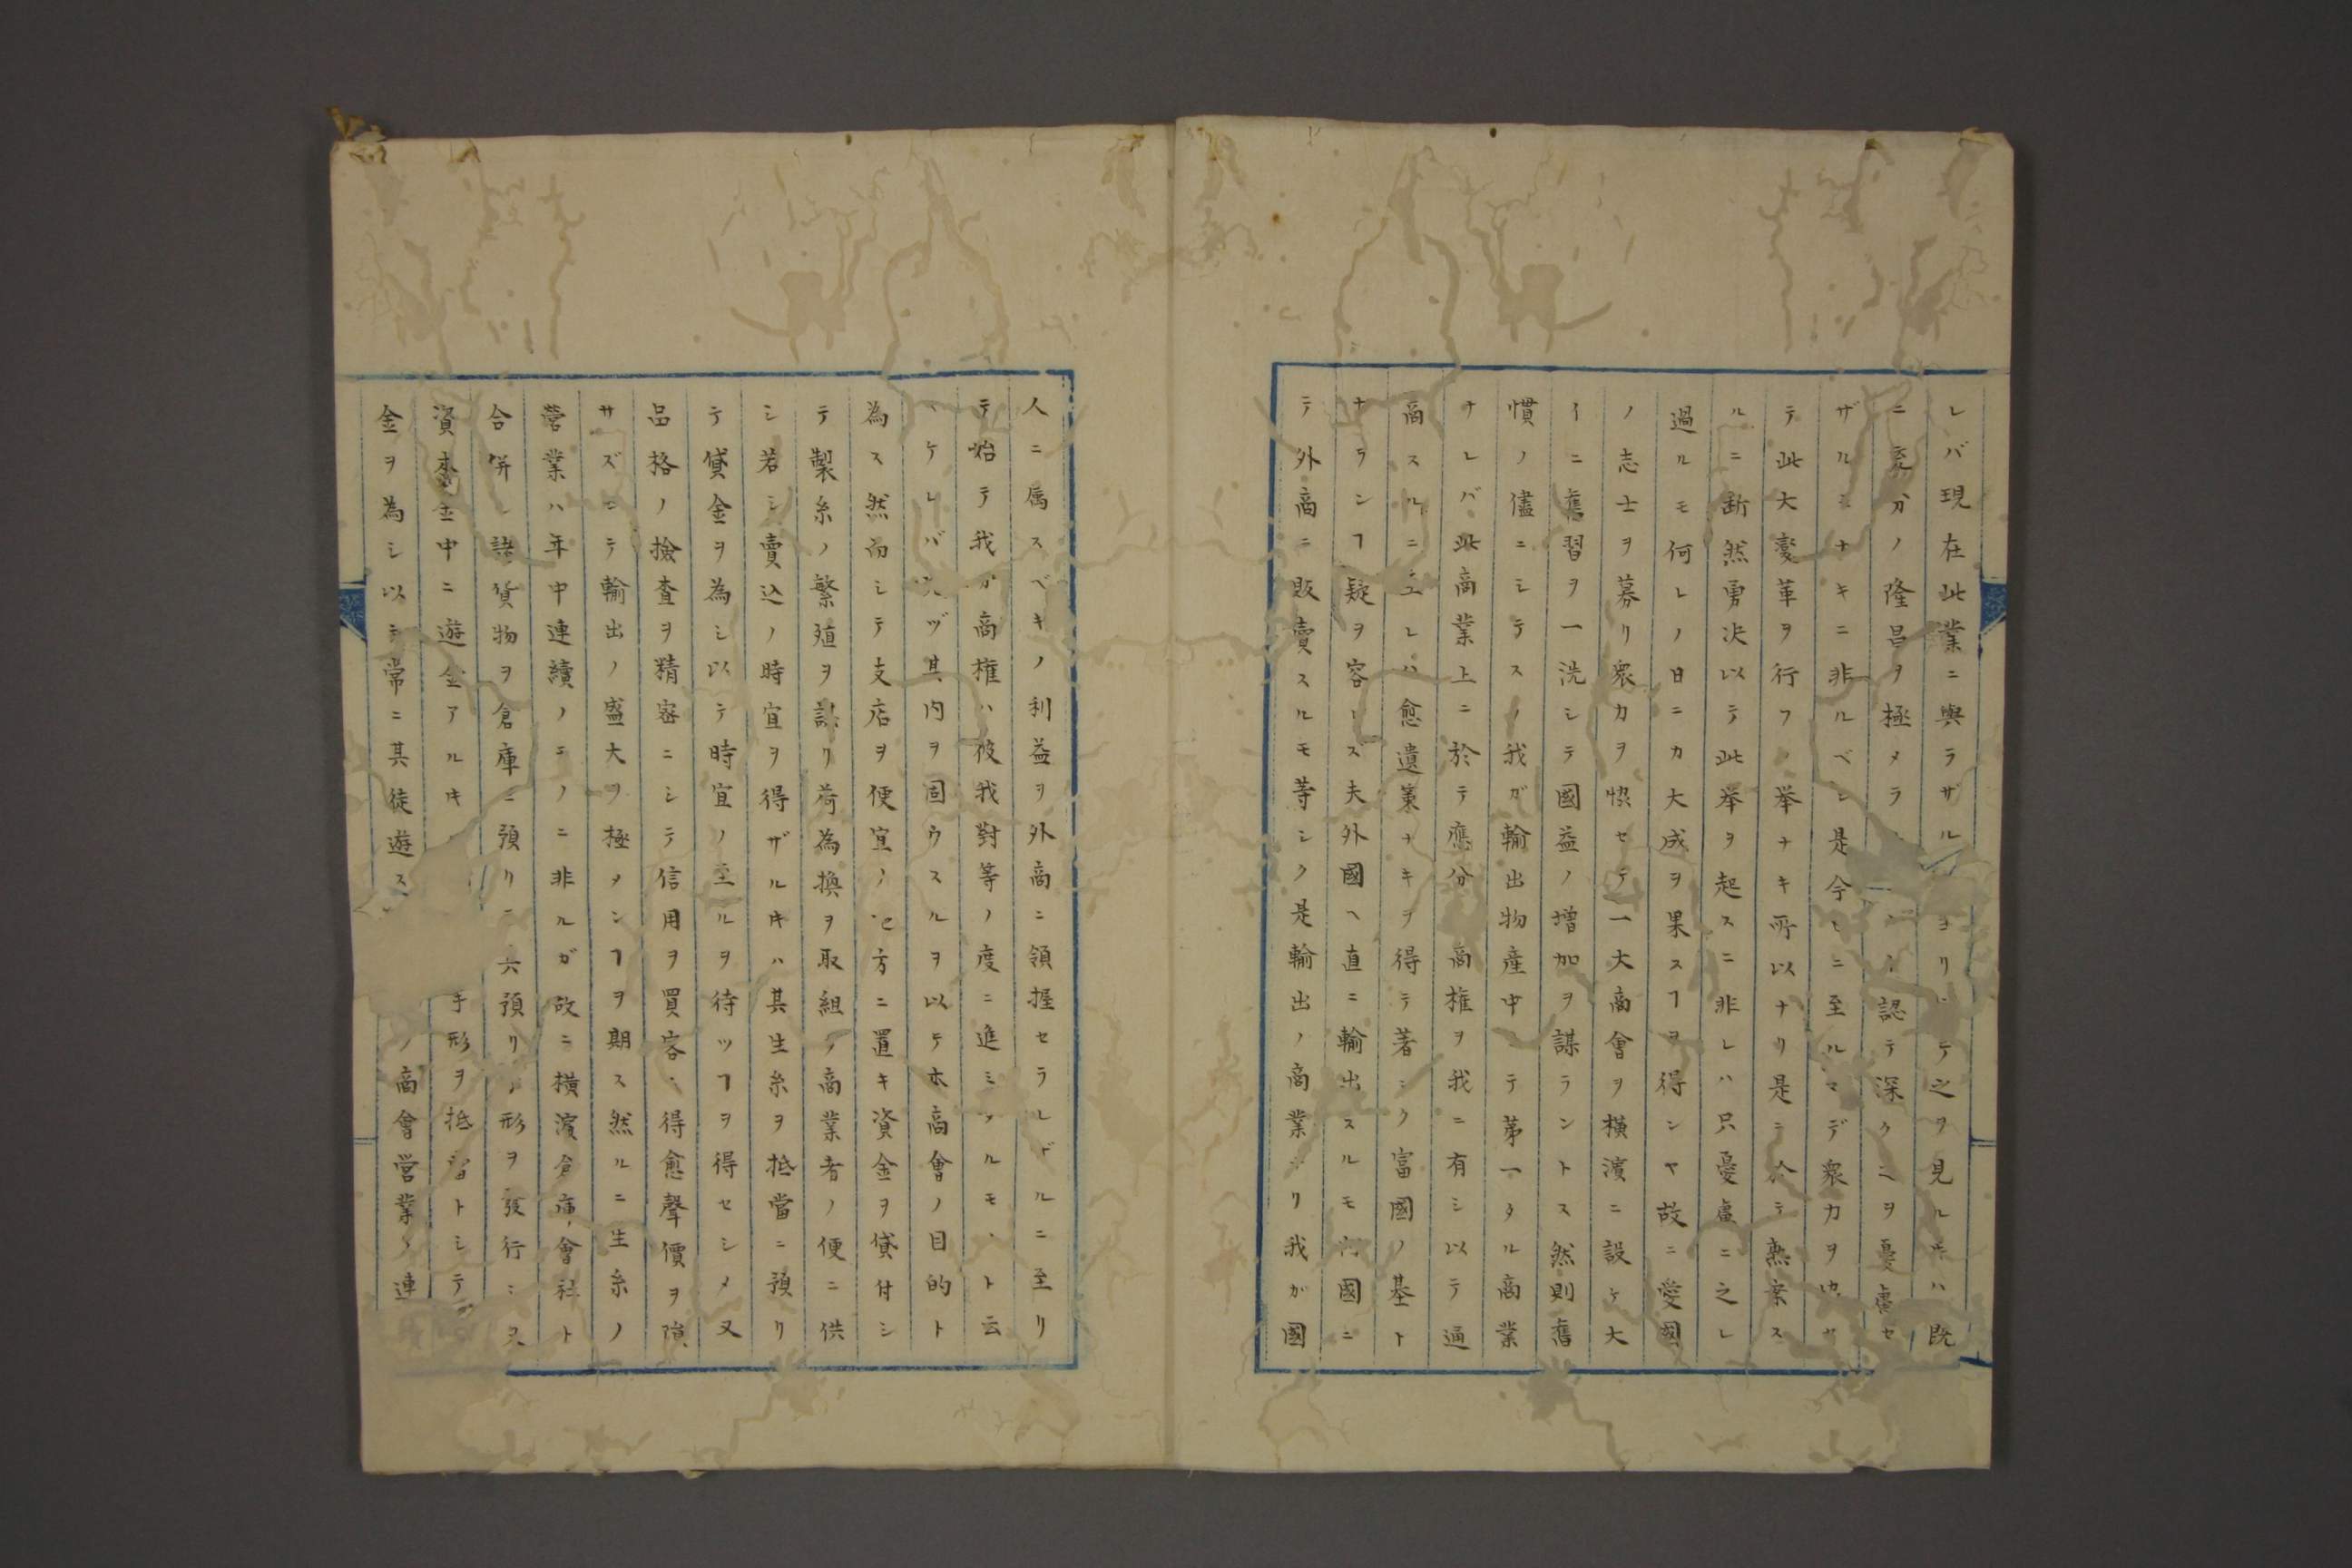 レバ現在此業ニ與ラザルヨリテ之ヲ見ルハ既
ニ充分ノ隆昌ヲ極メラ認テ深クヲ憂慮セ
ザルナキニ非ルベシ是今ニ至ルマデ衆力ヲ
テ此大変革ヲ行フノ挙ナキ所以ナリ是ニ於テ熟案ス
ルニ断然勇决以テ此挙ヲ起スニ非レハ只憂慮ニ之レ
過ルモ何レノ日ニカ大成ヲ果スヿヲ得ンヤ故ニ愛國
ノ志士ヲ募リ衆力ヲ恊セテ一大商會ヲ横濱ニ設ケ大
イニ舊習ヲ一洗シテ國益ノ増加ヲ謀ラントス然則舊
慣ノ儘ニシテス我ガ輸出物産中ニテ第一タル商業
ナレバ此商業上ニ於テ應分商権ヲ我ニ有シ以テ通
商スルニ至レハ愈遺策ナキヲ得テ著シク富國ノ基ト
ナランヿ疑ヲ容レズ夫外國ヘ直ニ輸出スルモ内國ニ
テ外商ニ販賣スルモ等シク是輸出ノ商業ナリ我ガ國
人ニ属スベキノ利益ヲ外商ニ領握セラレザルニ至リ
テ始テ我ガ商権ハ彼我對等ノ度ニ進ミタルモノト云
ハケレバ先ヅ其内ヲ固ウスルヲ以テ本商會ノ目的ト
為ス然而シテ支店ヲ便宜ノ地方ニ置キ資金ヲ貸付シ
テ製糸ノ繁殖ヲ謀リ荷為換ヲ取組ノ商業者ノ便ニ供
シ若シ賣込ノ時宜ヲ得ザルキハ其生糸ヲ抵當ニ預リ
テ貸金ヲ為シ以テ時宜ノ至ルヲ待ツヿヲ得セシメ又
品格ノ撿査ヲ精密ニシテ信用ヲ買客ニ得愈聲價ヲ隕
サズシテ輸出ノ盛大ヲ極メンヿヲ期ス然ルニ生糸ノ
營業ハ年中連續ノモノニ非ルガ故ニ横濱倉庫會社ト
合併シ諸貨物ヲ倉庫ニ預リ預リ形ヲ發行シ又
資本金中ニ遊金アルキ手形ヲ抵當トシテ
金ヲ為シ以テ常ニ其徒遊スノ商會営業ノ連